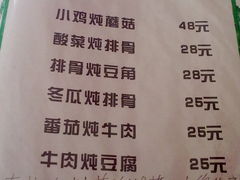 小鸡炖蘑菇 48元
酸菜炖排骨 28元
排骨炖豆角 28元
冬瓜炖排骨 25元
番茄炖牛肉 25元
牛肉炖豆腐 25元